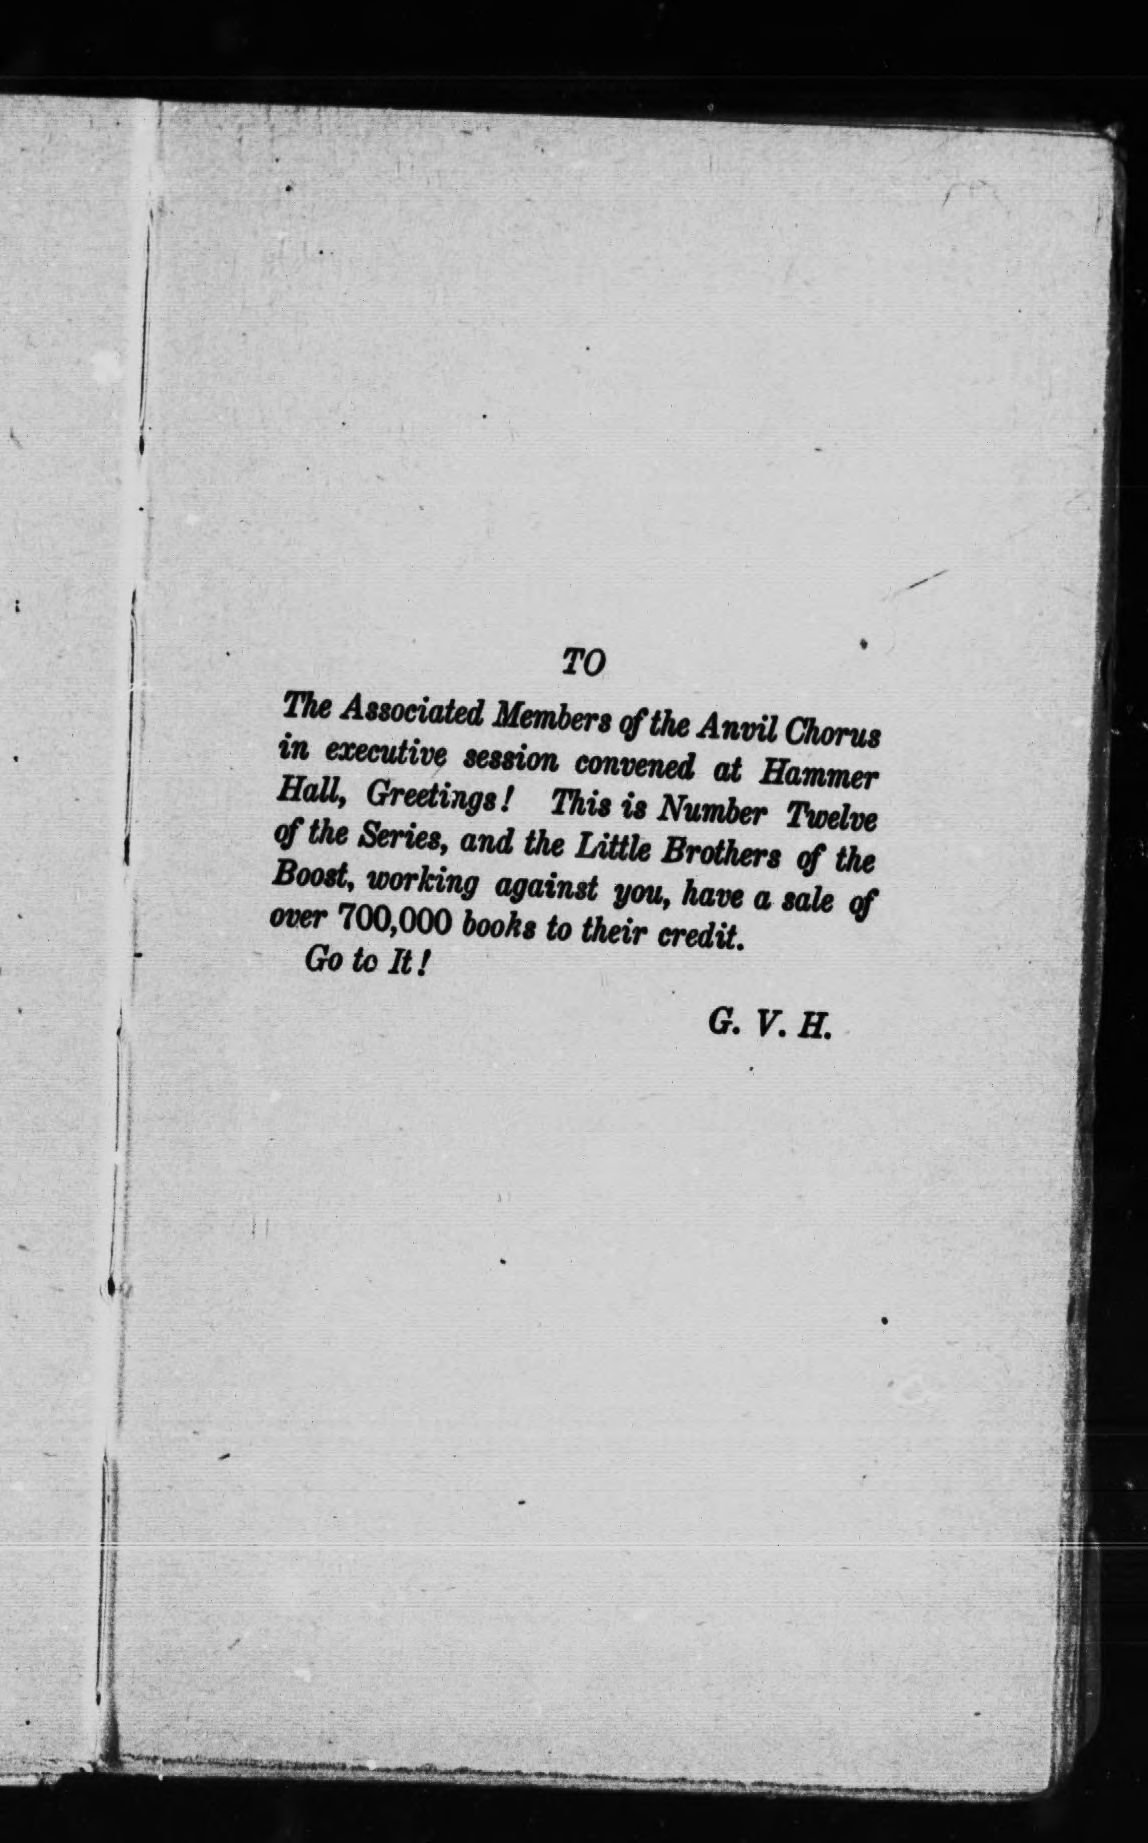 TO
The Associated Members of the Anvil Chorus
in executive session convened at Hammer
Hall, Greetings! This is Number Twelve
of the Series, and the Little Brothers of the
Boost, working against you, have a sale of
over 700,000 books to their credit.
Go to It!
G. V. H.